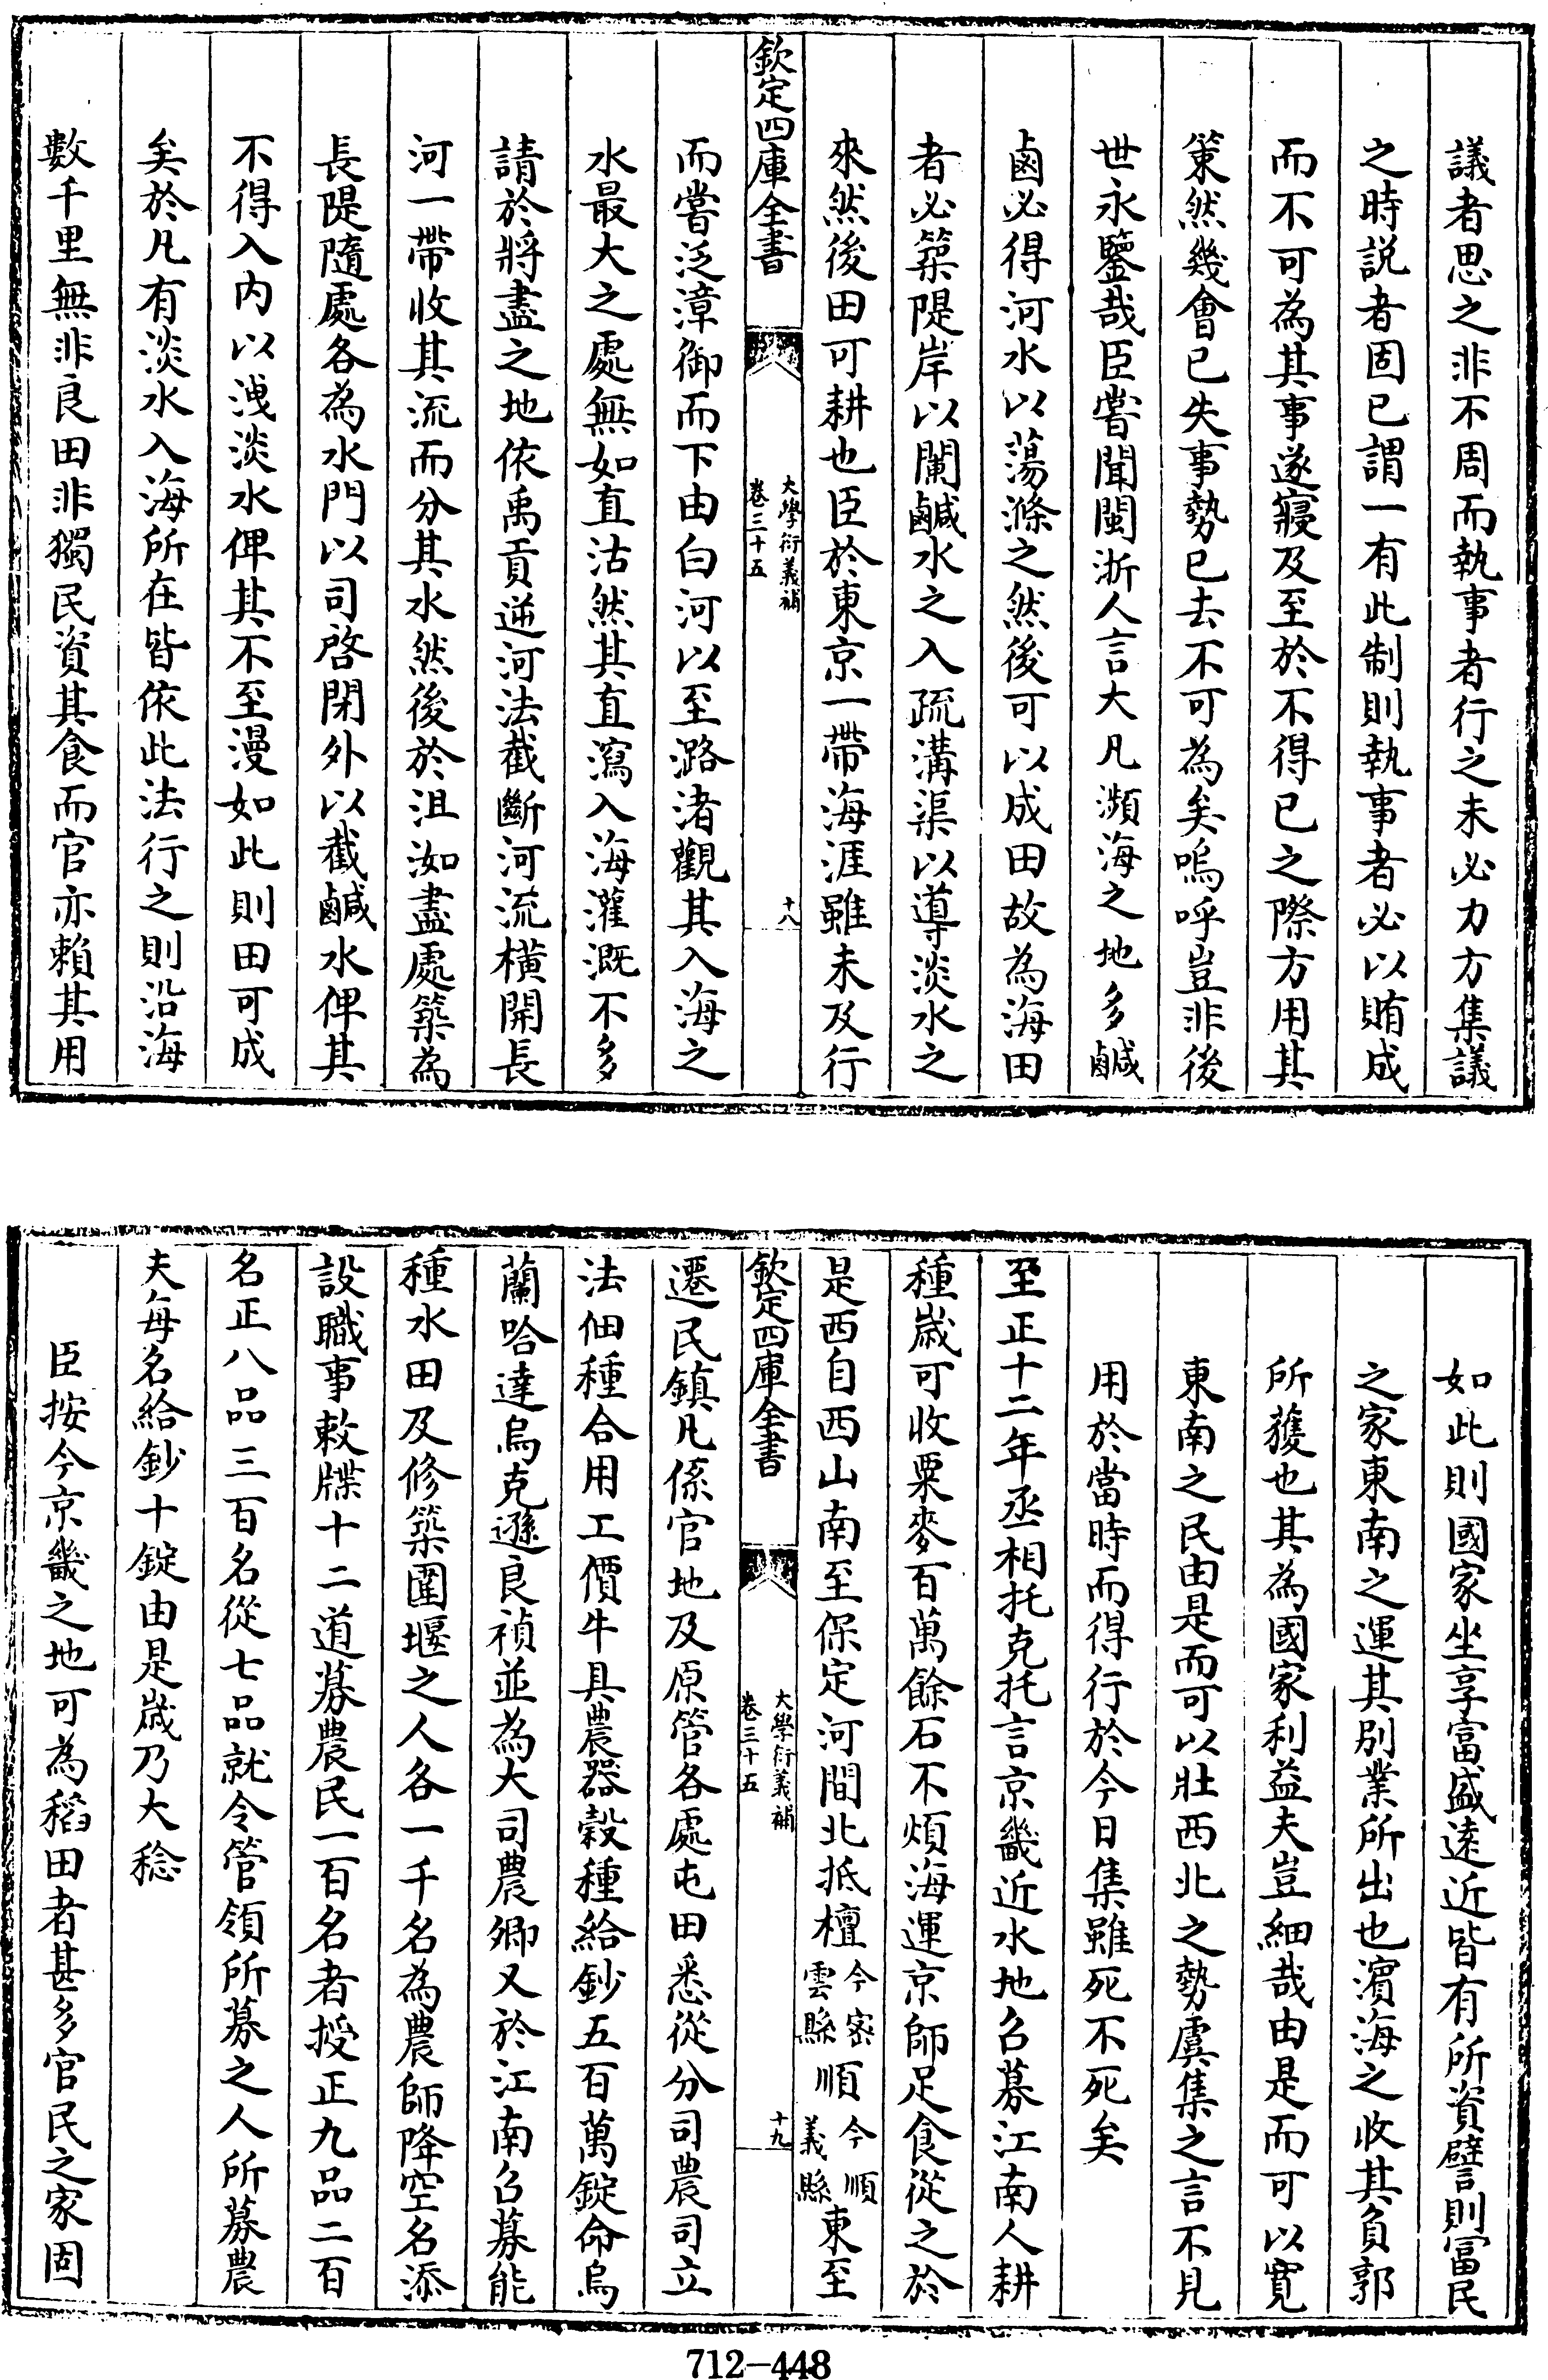 議者思之非不周而執事者行之未必力方集議
之時説者固已謂一有此制則執事者必以賄成
而不可為其事遂寢及至於不得已之際方用其
策然幾會已失事勢已去不可為矣嗚呼豈非後
世永鑒哉臣嘗聞閩浙人言大凡瀕海之地多鹹
鹵必得河水以蕩滌之然後可以成田故為海田
者必築隄岸以闌鹹水之入疏溝渠以導淡水之
來然後田可耕也臣於東京一帶海涯雖未及行
欽定四庫全書
大學衍義補
卷三十五
十八
而嘗泛漳御而下由白河以至潞渚觀其入海之
水最大之處無如直沽然其直瀉入海灌溉不多
請於將盡之地依禹貢逆河法截斷河流橫開長
河一帶收其流而分其水然後於沮洳盡處築為
長隄隨處各為水門以司啓閉外以截鹹水俾其
不得入内以洩淡水俾其不至漫如此則田可成
矣於凡有淡水入海所在皆依此法行之則沿海
數千里無非良田非獨民資其食而官亦賴其用
如此則國家坐享富盛遠近皆有所資譬則富民
之家東南之運其别業所出也濱海之收其負郭
所獲也其為國家利益夫豈細哉由是而可以寛
東南之民由是而可以壯西北之勢虞集之言不見
用於當時而得行於今日集雖死不死矣
至正十二年丞相托克托言京畿近水地召募江南人耕
種歲可收粟麥百萬餘石不煩海運京師足食從之於
是西自西山南至保定河間北抵檀今密雲縣順今順義縣東至
欽定四庫全書
大學衍義補
卷三十五
十九
遷民鎮凡係官地及原管各處屯田悉從分司農司立
法佃種合用工價牛具農器穀種給鈔五百萬錠命烏
蘭哈達烏克遜良禎並為大司農卿又於江南召募能
種水田及修築圍堰之人各一千名為農師降空名添
設職事敕牒十二道募農民一百名者授正九品二百
名正八品三百名從七品就令管領所募之人所募農
夫每名給鈔十錠由是歲乃大稔
臣按今京畿之地可為稻田者甚多官民之家固
712-448